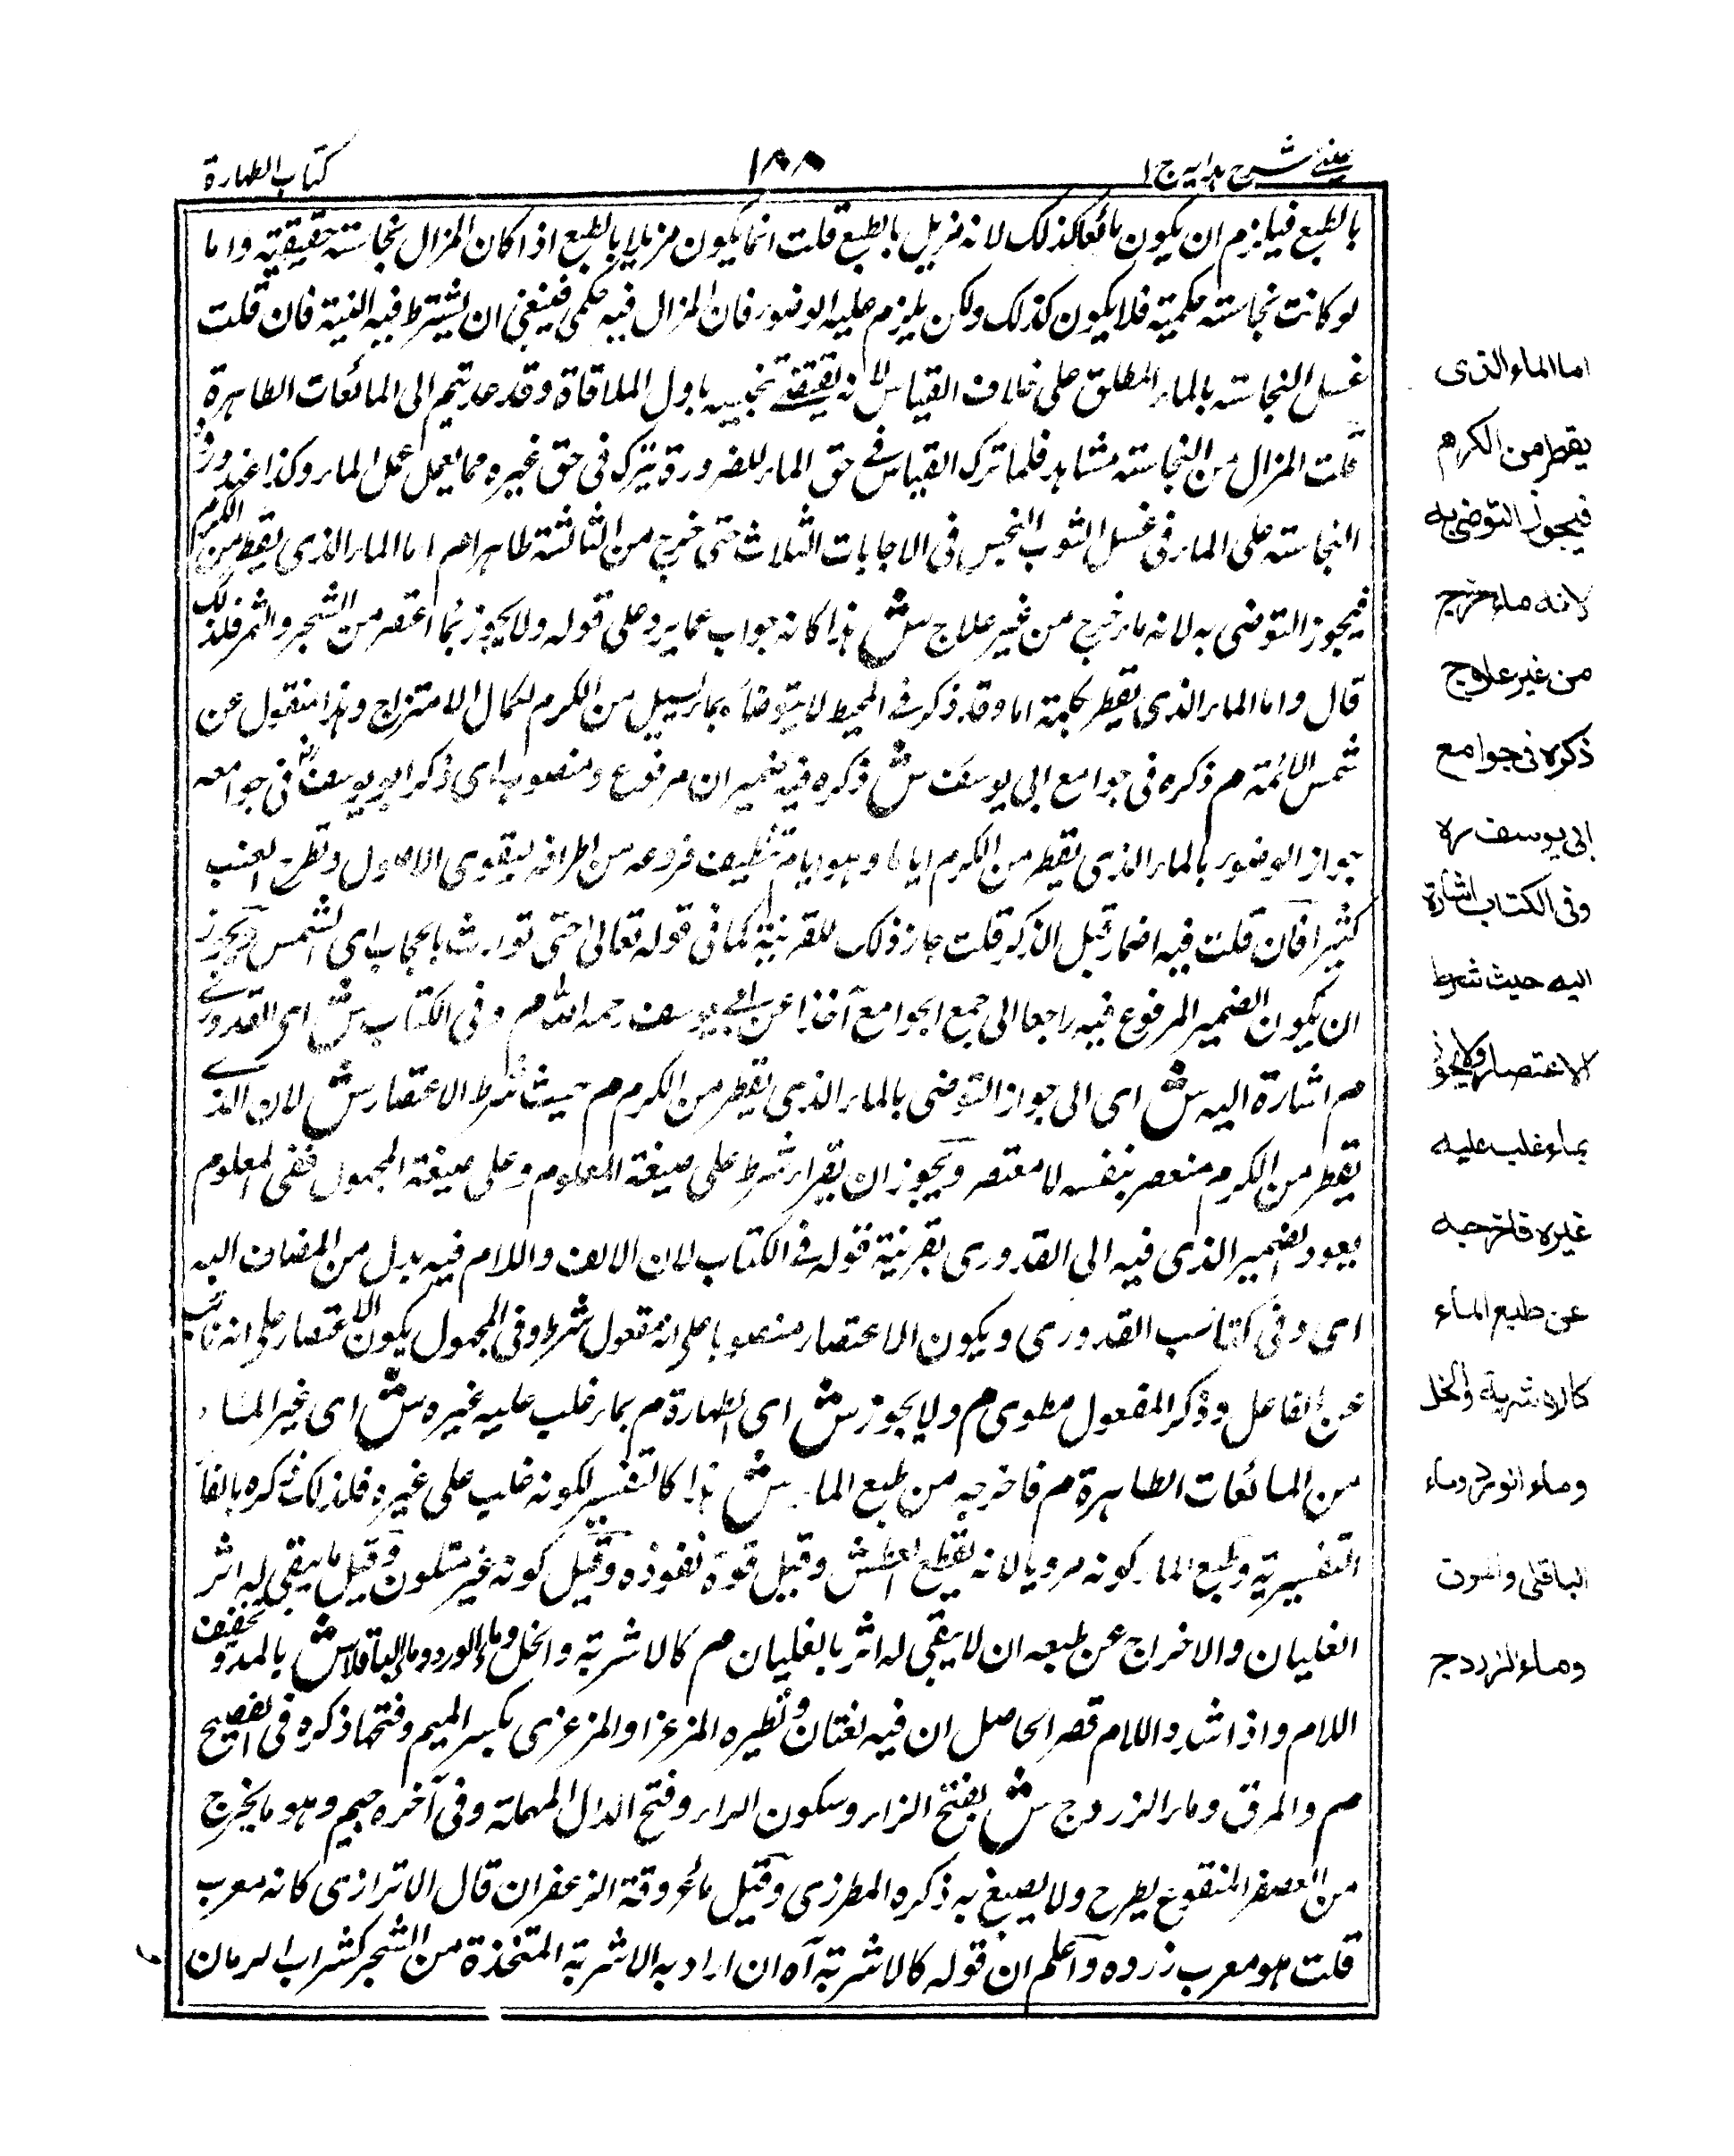 عينے شرح ہدایہ ج ۱
۱۸۸
كتاب الطهارة
بالطبع فيلزم ان يكون مائعا كذلك لانه مزيل بالطبع قلت انما يكون مزيلا بالطبع اذا كان المزال نجاسته حقيقية واما
لو كانت نجاسته حكمية فلا يكون كذلك ولكن يلزم عليه الوضوء فان المزال فيه حكمى فينبغى ان يشترط فيه النية فان قلت
غسل النجاسته بالماء المطلق على خلاف القياس لانه يقتضے تنجيسه باول الملاقاة وقد عديتم الى المائعات الطاهرة
قلت المزال من النجاسته مشاهد فلما ترك القياس فے حق الماء للضرورة يترك فى حق غيره مما يعمل عمل الماء وكذا عند ورود
النجاسته على الماء فى غسل الثوب النجس فى الاجابات الثلاث حتى خرج من الثالثة طاهرا م اما الماء الذى يقطر من الكرم
فيجوز التوضى به لانه ماء خرج من غير علاج ش هذا كانه جواب عما يرد على قوله ولا يجوز بما اعتصر من الشجر والثمر فلذلك
قال واما الماء الذى يقطر بكلمة اما وقد ذكر فے المحيط لا يتوضأ بماء يسيل من الكرم لكمال الامتزاج وهذا منقول عن
شمس الائمة م ذكره فى جوامع ابى يوسف ش ذكره فيه ضميران مرفوع ومنصوب اى ذكر ابو يوسف فى جوامعه
جواز الوضوء بالماء الذى يقطر من الكرم ايام وهو ايامة تنظيف فروعه من اطرافه ليقوى الاصول وتطرح العنب
كثيرا فان قلت فيه اضمار قبل الذكر قلت جاز ذلك للقرينة كما فى قوله تعالى حتى توارت بالحجاب اى الشمس ويجوز
ان يكون الضمير المرفوع فيه راجعا الى جمع الجوامع آخذا عن ابے يوسف رحمه الله م وفى الكتاب ش اى القدورے
م اشارة اليه ش اى الى جواز التوضى بالماء الذى يقطر من الكرم م حيث شرط الاعتصار ش لان الذے
يقطر من الكرم منعصر بنفسه لا معتصر ويجوز ان يقرا شرط على صيغة المعلوم وعلى صيغة المجهول ففى المعلوم
يعود الضمير الذى فيه الى القدورى بقرينة قوله فے الكتاب لان الالف واللام فيه بدل من المضاف اليه
اى وفى كتاب القدورى ويكون الاعتصار منصوبا على انه مفعول شرط وفى المجهول يكون الاعتصار على انه نائب
عن الفاعل وذكر المفعول مطوى م ولا يجوز ش اى الطهارة م بماء غلب عليه غيره ش اى غير الماء
من المائعات الطاهرة م فاخرجه من طبع الماء ش هذا كالتفسير لكونه غلب على غيره فلذلك ذكره بالفاء
التفسيرية وطبع الماء كونه مرويا لانه يقطع العطش وقيل قوة نفوذه وقيل كونه غير متلون وقيل ما يبقى له اثر
الغليان والاخراج عن طبعه ان لا يبقى له اثر بالغليان م كالاشربة والخل وماء الورد وماء الباقلا ش بالمد وتخفيف
اللام واذا شدد اللام قصر الحاصل ان فيه لغتان ونظيره المرعزا والمرعزى بكسر الميم وفتحها ذكره فى الفصيح
م والمرق وماء الزردج ش بفتح الزاء وسكون الراء وفتح الدال المهملة وفى آخره جيم وهو ما يخرج
من العصفر المنقوع يطرح ولا يصبغ به ذكره المطرزى وقيل ماء عروقة الزعفران قال الاترازى كانه معرب
قلت هو معرب زرده واعلم ان قوله كالاشربة آه ان اراد به الاشربة المتخذة من الشجر كشراب الرمان
اما الماء الذى
يقطر من الكرم
فيجوز التوضى به
لانه ماء خرج
من غير علاج
ذكره فى جوامع
ابى يوسف رہ
وفى الكتاب اشارة
اليه حيث شرط
الاعتصار ولا يجوز
بماء غلب عليه
غيره فاخرجه
عن طبع الماء
كالاشربة والخل
وماء الورد وماء
الباقلى والمرق
وماء الزردج